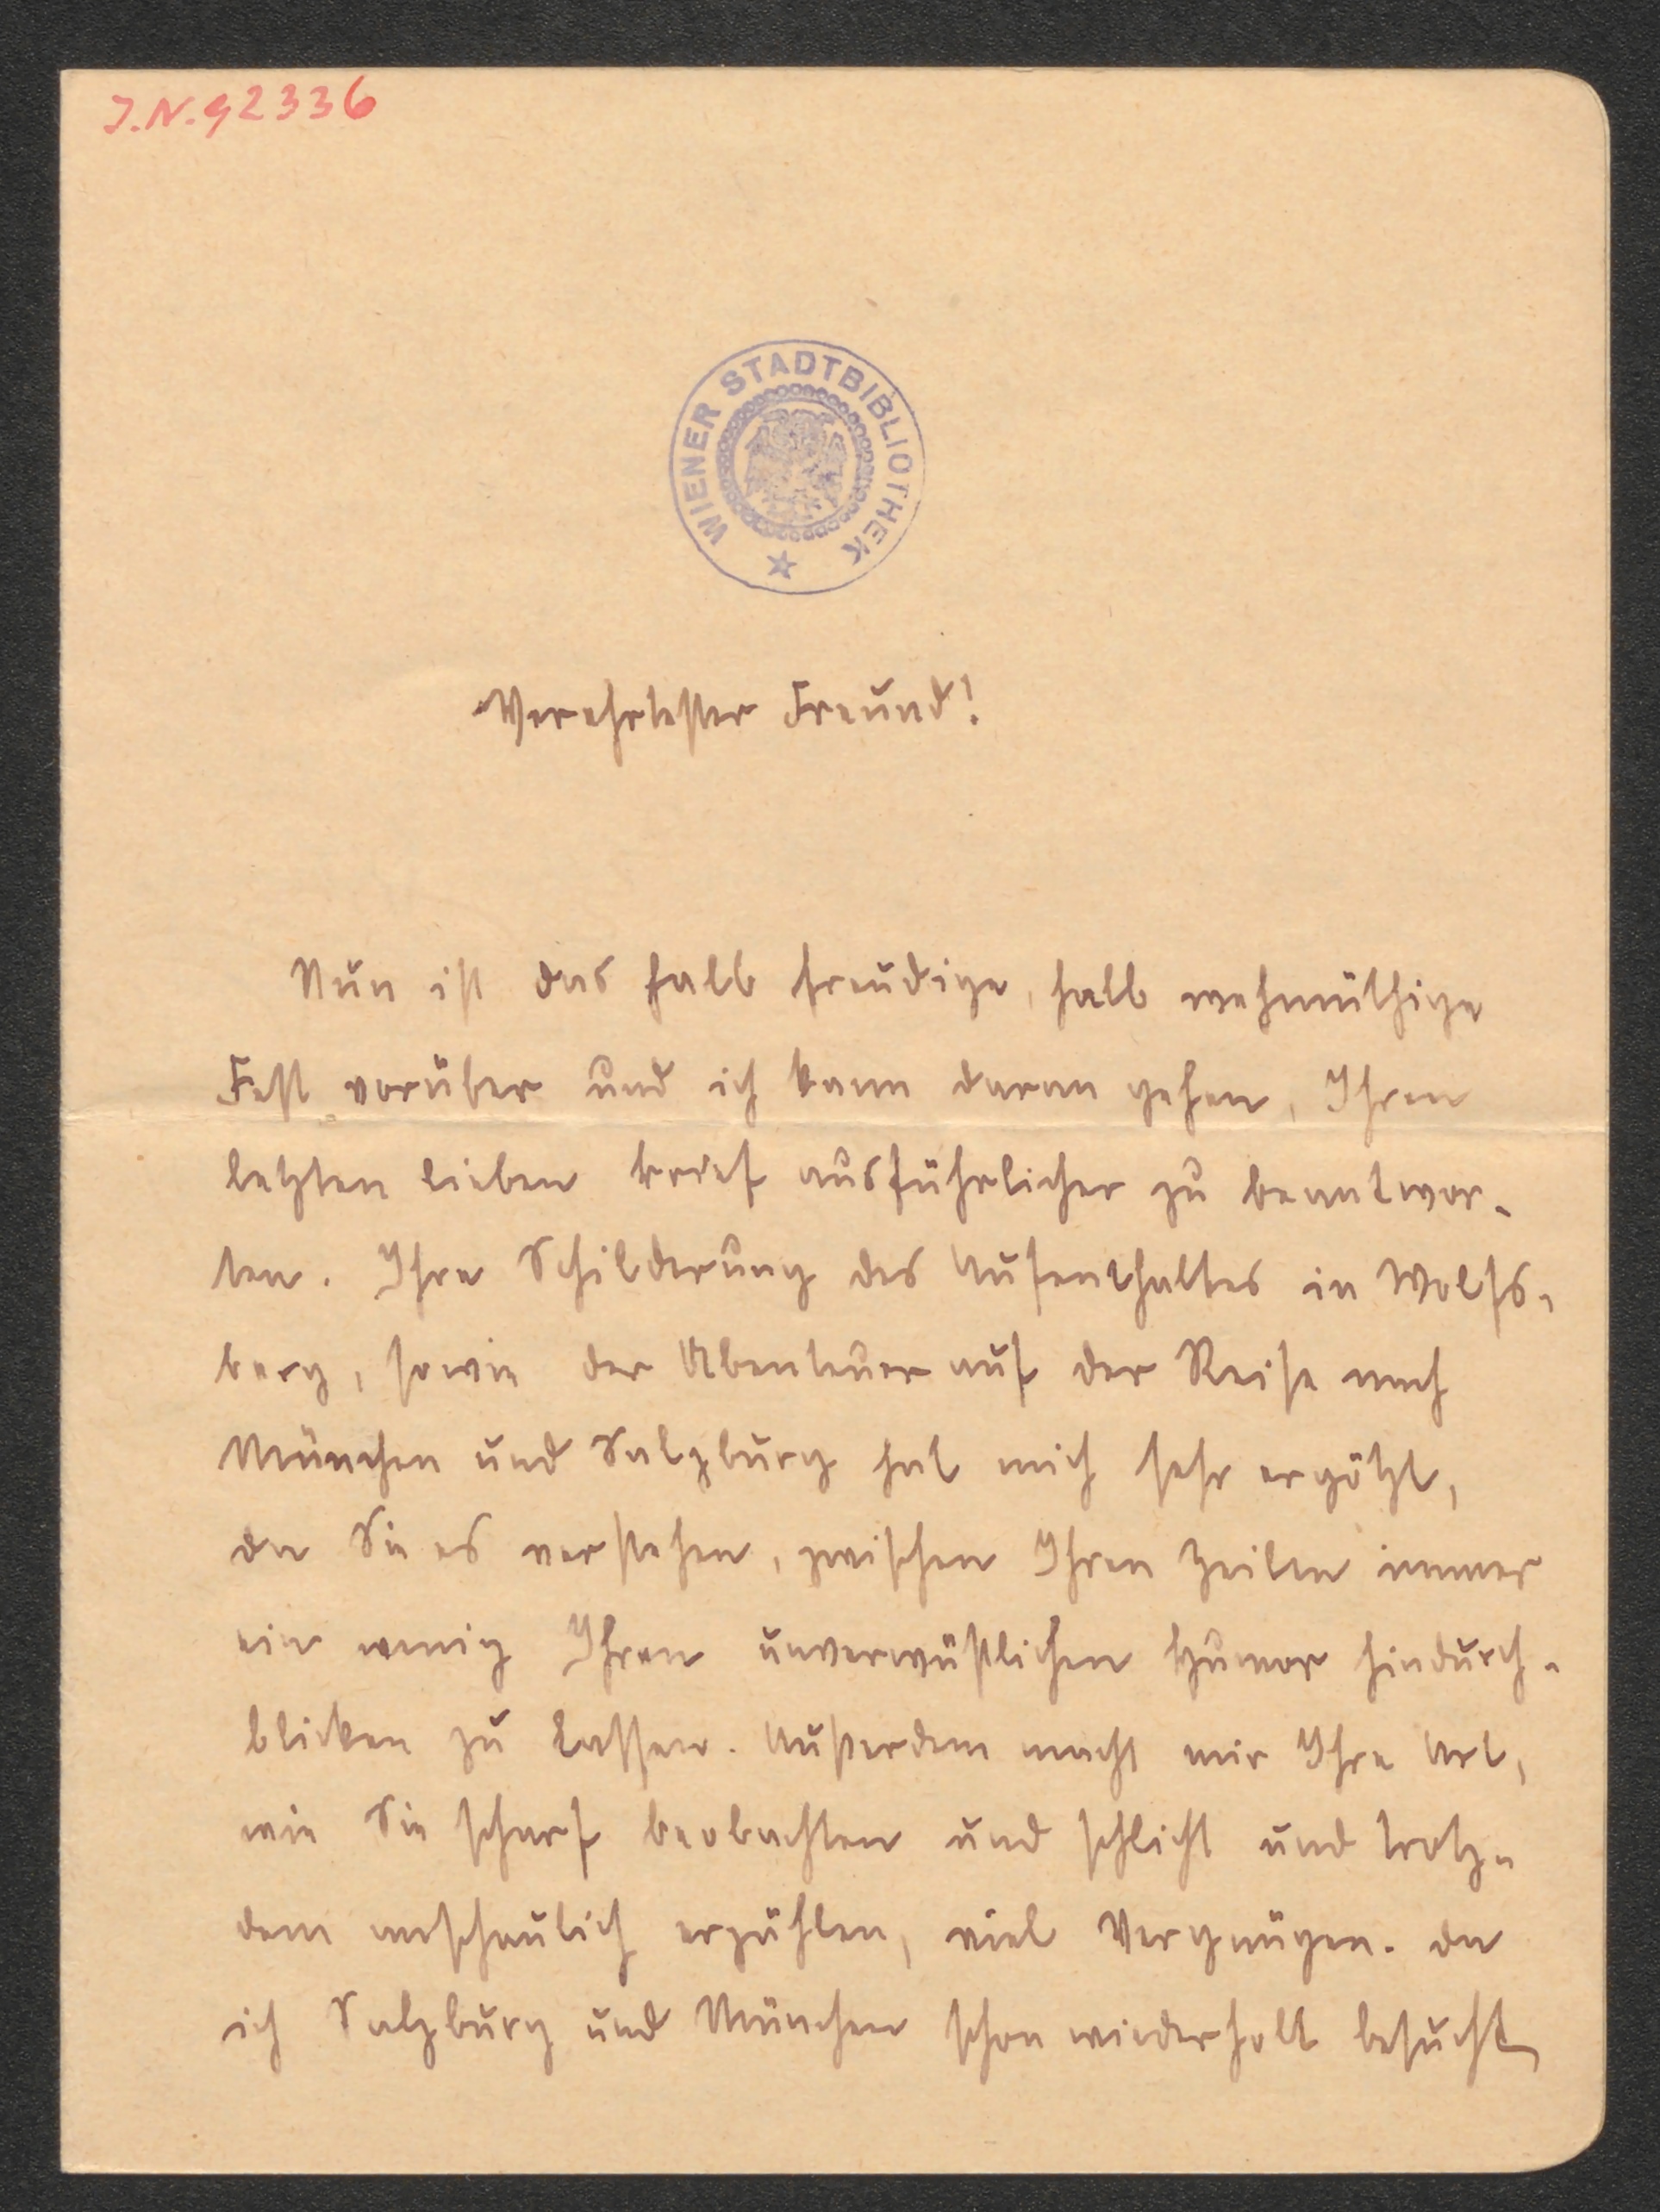 J.N.92336
WIENER STADTBIBLIOTHEK
Verehrtester Freund!
Nun ist das halb freudige, halb wehmüthige
Fest vorüber und ich kann daran gehen, Ihren
letzten lieben Brief ausführlicher zu beantwor-
ten. Ihre Schilderung des Aufenthaltes in Wolfs-
berg, sowie der Abenteuer auf der Reise nach
München und Salzburg hat mich sehr ergötzt,
da Sie es verstehen, zwischen Ihren Zeilen immer
ein wenig Ihren unverwüstlichen Humor hindurch-
blicken zu lassen. Außerdem macht mir Ihre Art,
wie Sie scharf beobachten und schlicht und trotz-
dem anschaulich erzählen, viel Vergnügen. Da
ich Salzburg und München schon wiederholt besucht